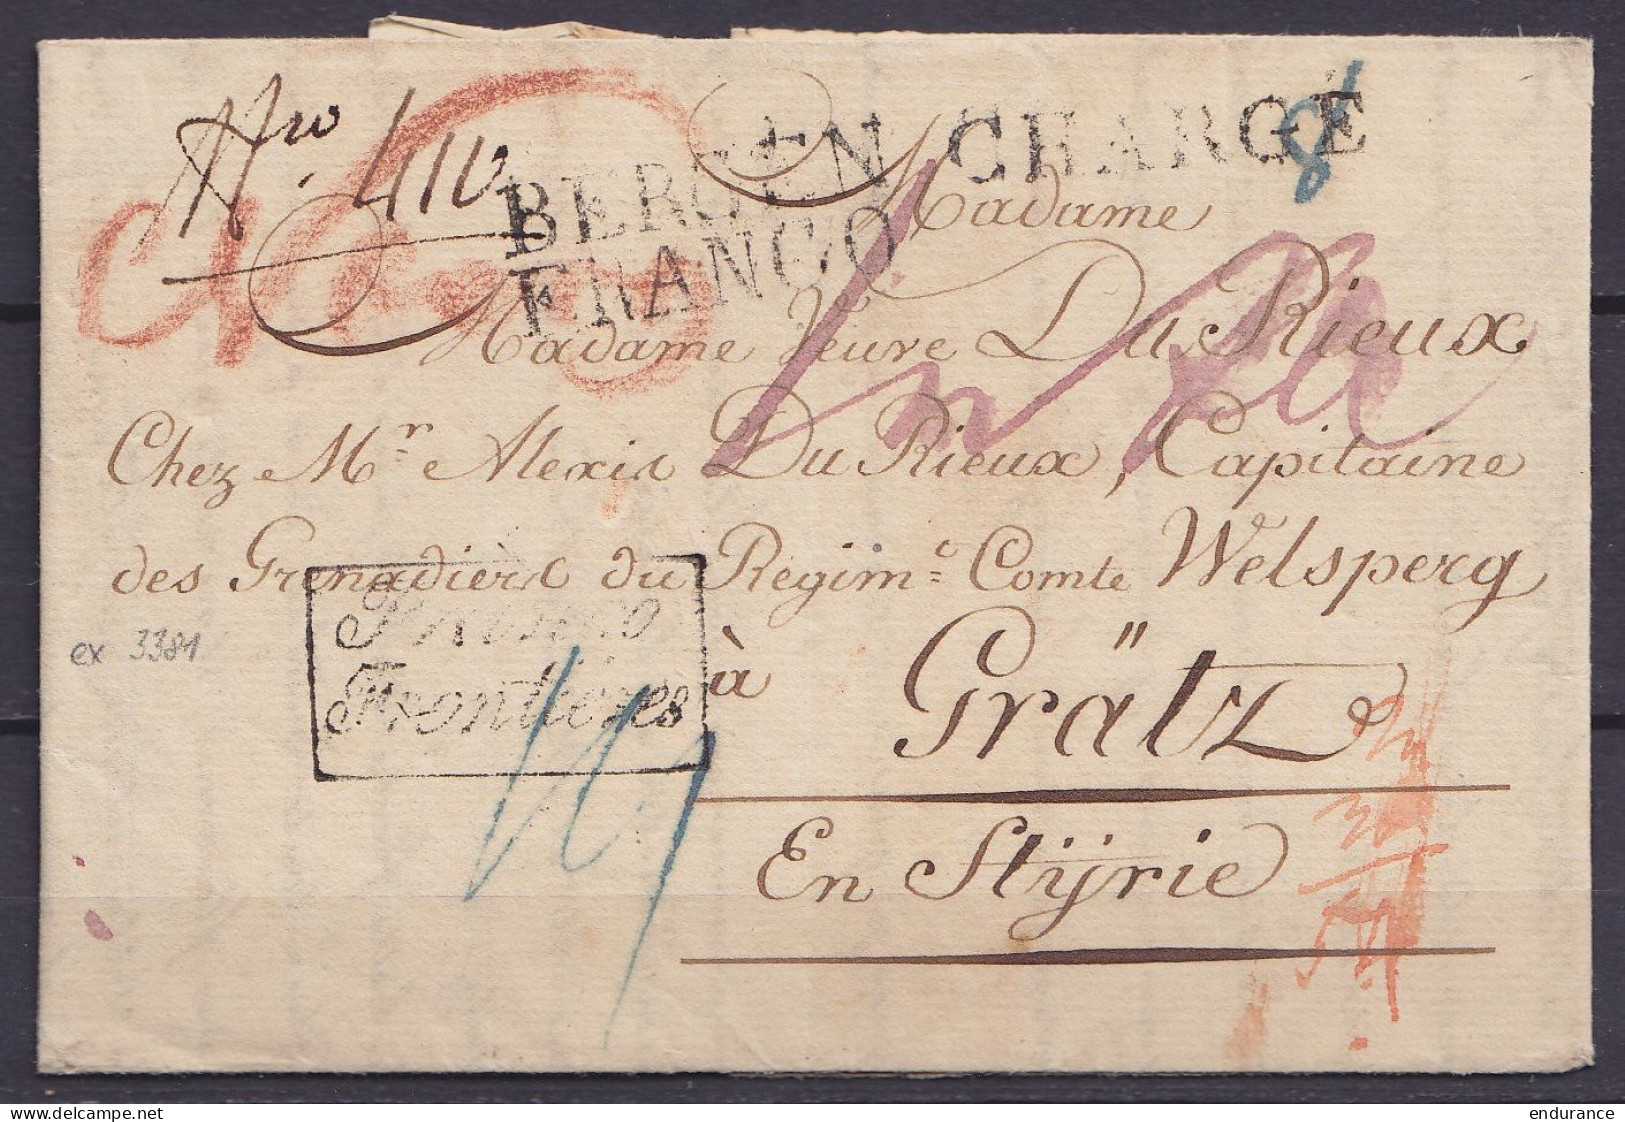 Nro. 410
BERGEN CHARGÉ
FRANCO
Madame
Madame Veuve Du Rieux
Chez Mr. Alexis Du Rieux, Capitaine
des Grenadiers du Regimc. Comte Welsperg
à Grätz
En Stÿrie
Frontières
ex 3381
endurance